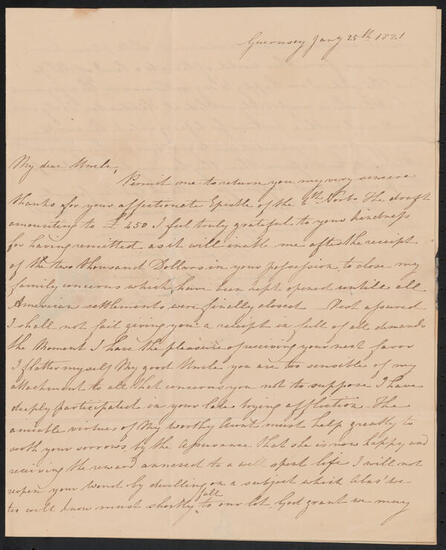 Guernsey Jany 25th 1821
My dear Uncle,
Permit me to return you my very sincere
thanks for your affectionate Epistle of the 4th Novbr The draft
amounting to £450 I feel truly grateful to your kindness
for having remitted, as it will enable me after the receipt
of the two thousand Dollars in your possession to close my
family concerns which have been kept opened untill all
American settlements were finally closed. Rest assured
I shall not fail giving you a receipt in full of all demands
the Moment I have the pleasure of receiving your next favor
I flatter myself My good Uncle you are too sensible of my
attachment to all that concerns you not to suppose I have
deeply participated in your late trying affliction The
amiable virtues of My worthy Aunt must help greatly to
sooth your sorrows by the Assurance that she is now happy and
receiving the reward annexed to a well spent life I will not
reopen your wound by dwelling on a subject which Alas! we
too well know must shortly fall to our lot God grant we may